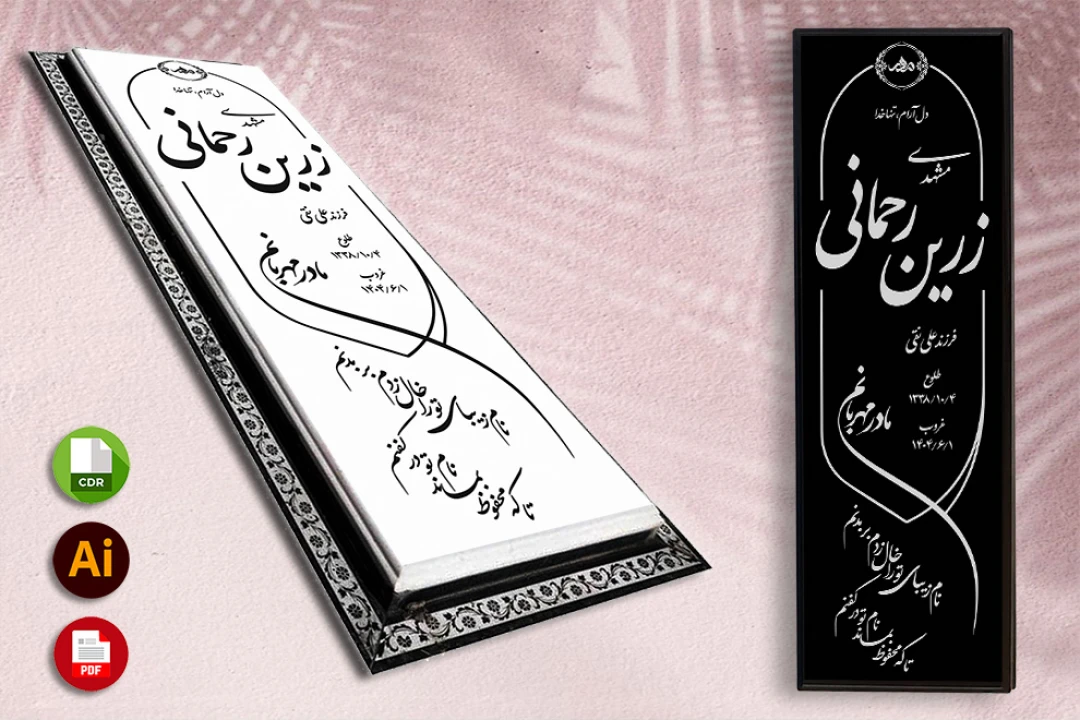 دل آرام، تنها خدا
مشهدی
زرین رحمانی
فرزند علی نقی
طلوع
۱۳۳۸/۱۰/۴
غروب
۱۴۰۴/۶/۱
مادر مهربانم
نام زیبای تو را خال زدم بر بدنم
تا که محفوظ بماند نام تو در کفنم
دل آرام، تنها خدا
مشهدی
زرین رحمانی
فرزند علی نقی
طلوع
۱۳۳۸/۱۰/۴
غروب
۱۴۰۴/۶/۱
مادر مهربانم
نام زیبای تو را خال زدم بر بدنم
تا که محفوظ بماند نام تو در کفنم
CDR
Ai
PDF